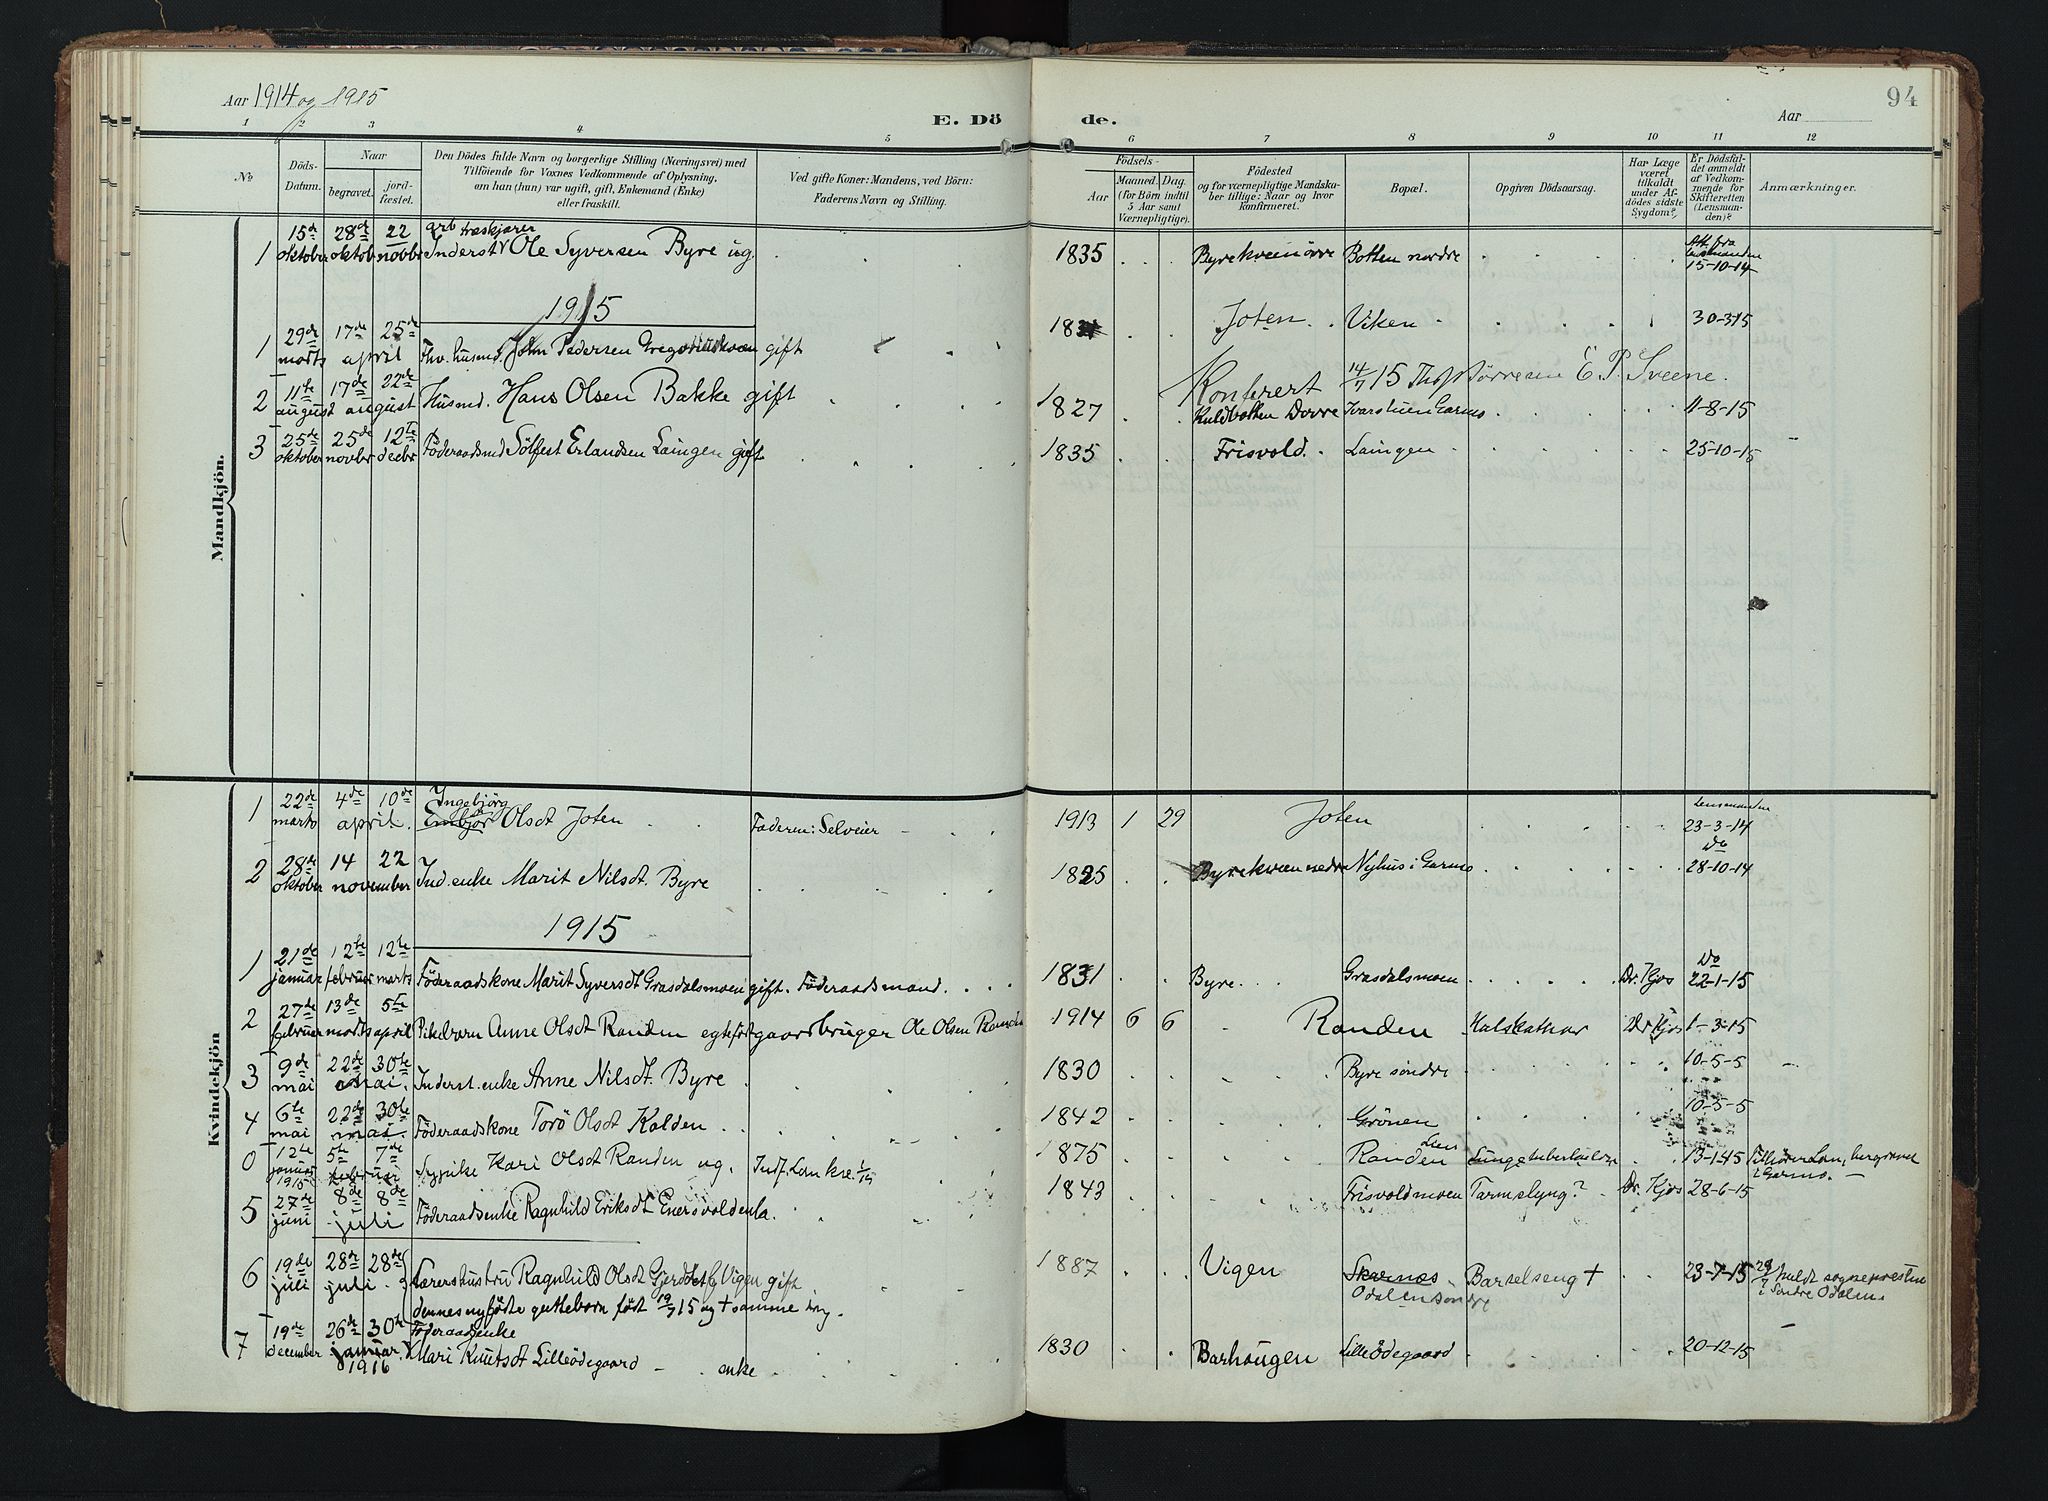 Aar 1914 og 1915
E. Dö de.
Aar
94
1 2 3 4 5 6 7 8 9 10 11 12
No
Döds-Datum.
Naar
begravet.
jord-fæstet.
Den Dödes fulde Navn og borgerlige Stilling (Næringsvei) med
Tilföiende for Voxnes Vedkommende af Oplysning,
om han (hun) var ugift, gift, Enkemand (Enke)
eller fraskilt.
Ved gifte Koner: Mandens, ved Börn:
Faderens Navn og Stilling.
Födsels-
Aar
Maaned. Dag.
(for Börn indtil
5 Aar samt
Værnepligtige).
Födested
og for værnepligtige Mandska-
ber tillige: Naar og hvor
konfirmeret.
Bopæl.
Opgiven Dödsaarsag.
Har Læge
været
tilkaldt
under Af-
dödes sidste
Sygdom?
Er Dödsfal-
det anmeldt
af Vedkom-
mende for
Skifteretten
(Lensman-
den)?
Anmærkninger.
Mandkjön.
1 15de oktober 28de oktob 22 novbr Inderst Ole Syversen Byre ug. 1835 Botten nordre Att. fra lensmanden 15-10-14
1915
1 29de marts 17de april 25de Fhv. husmd. John Pedersen gift Joten Viken 30-3-15
Konferert 14/7 15 E. P. Sveene.
2 11te august 17de august 22de Husmd. Hans Olsen Bakke gift 1827 Kuldbotten Dovre Ivarstuen Garmo 11-8-15
3 25de oktober 25de novbr 12te decbr Föderaadsmd Sölfest Erlandsen Laingen gift 1835 Frisvold. Laingen 25-10-15
Kvindekjön
1 22de marts 4de april. 10de Ingebjörg Embjör Olsdt Joten Faderen: Selveier 1913 1 29 Joten Lensmanden 23-3-14
2 28de oktober 14 november 22 Ind. enke Marit Nilsdt. Byre 1825 Byrekveen nedre Nyhus i Garmo Do 28-10-14
1915
1 21de januar 12te februar 12te marts Föderaadskone Marit Syversdt Grasdalsmoen gift. Föderaadsmand. 1831 Byre Grasdalsmoen Dr. Kjos Do 22-1-15
2 27de februar 13de marts 5te april Pikebarn Anne Olsdt Randen egtefödt gaardbruger Ole Olsen Randen 1914 6 6 Randen Halskathar Dr Kjos 1-3-15
3 9de mai 22de mai. 30te Inderst. enke Anne Nilsdt. Byre 1830 Byre söndre 10-5-5
4 6te mai 22de mai. 30te Föderaadskone Torö Olsdt Kolden 1842 Grönen 10-5-5
0 12te januar 1915 5te februar 7de Sypike Kari Olsdt Randen ug. Indf. Lom 1875 Randen Lien Lungetuberkulose 13-1-15 Tilhörer Lom, begravet i Garmo.
5 27de juni 8de juli 8de Föderaadsenke Ragnhild Eriksdt Enersvoldenla. 1843 Frisvoldmoen Tarmslyng? Dr. Kjos 28-6-15
6 19de juli 28de juli 28de Lærershustru Ragnhild Olsdt Vigen gift 1887 Vigen Skarnes Odalen söndre Barselseng + 23-7-15 29/7 holdt sognepresten i Söndre Odalen.
dennes nyfödte guttebarn födt 19/7 15 og + samme dag.
7 19de december 26de januar 1916 30te Föderaadsenke Mari Knutsdt Lilleödegaard enke 1830 Barhougen Lilleödegaard 20-12-15